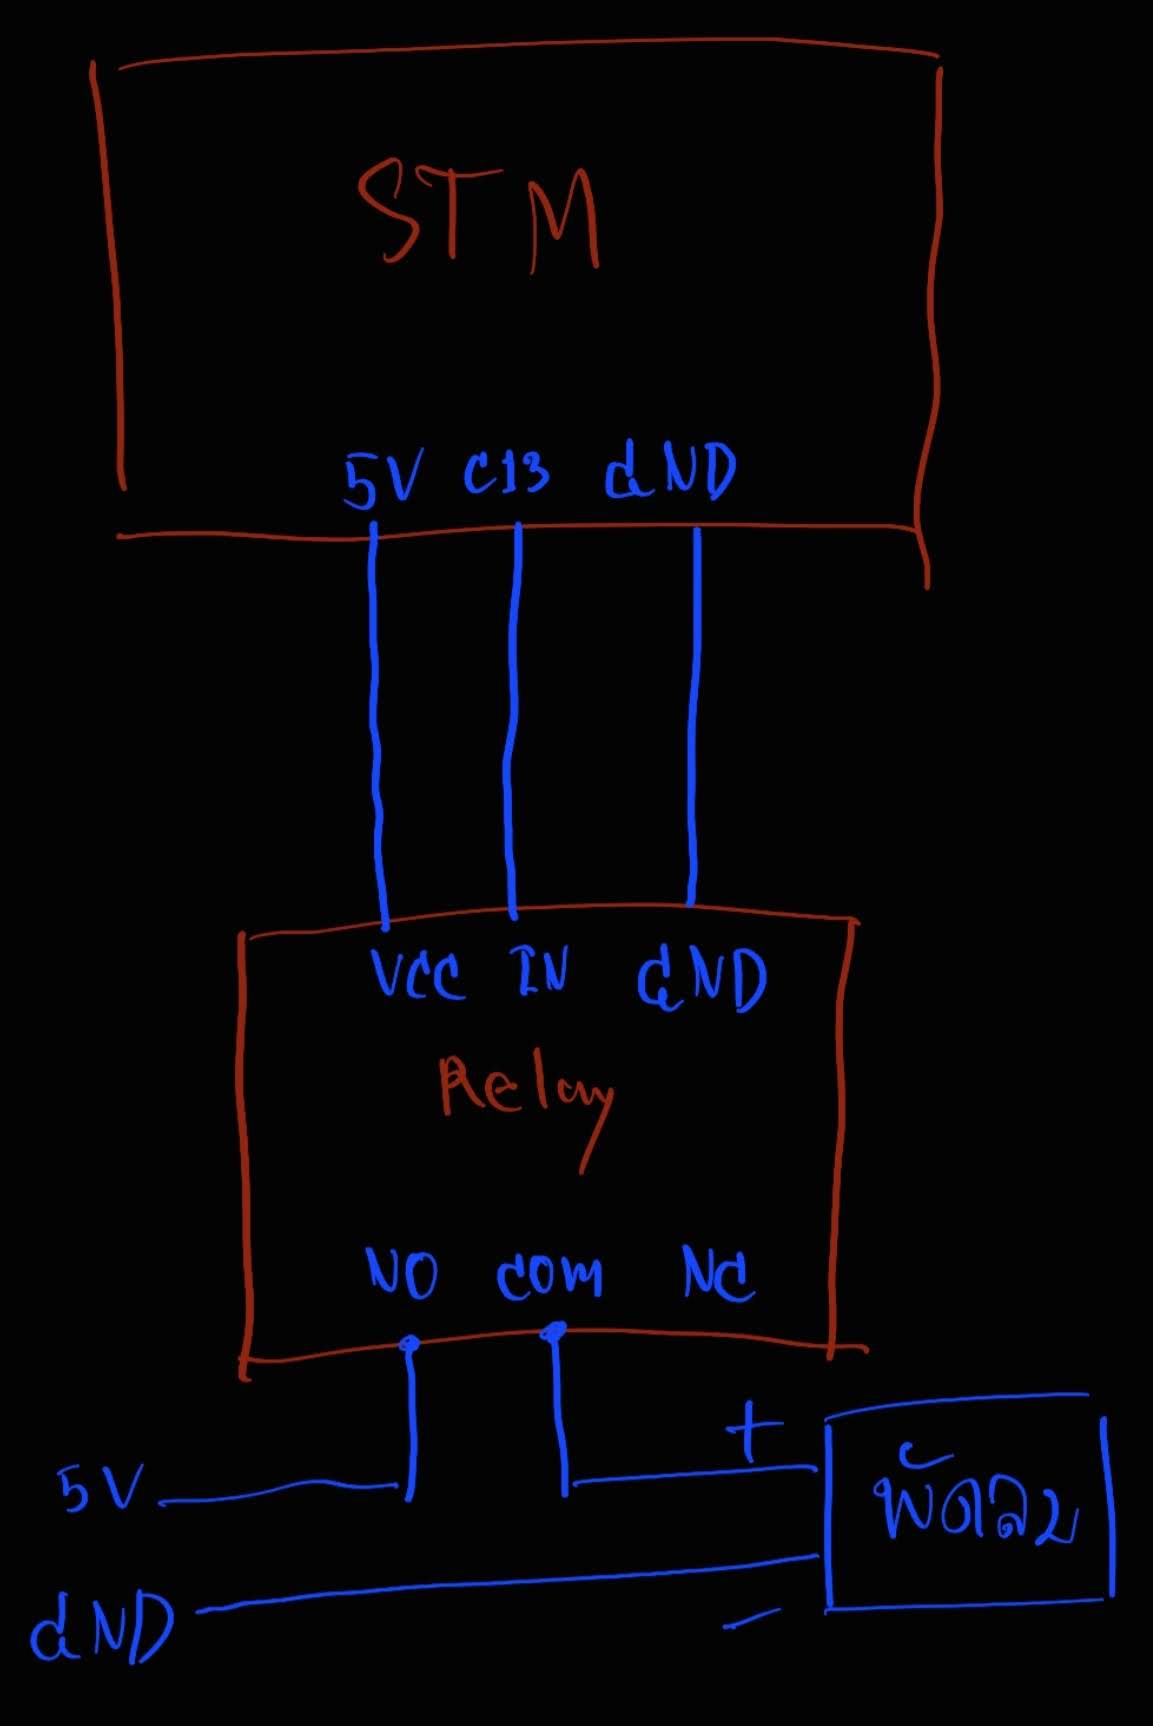 STM
5V C13 GND
VCC IN GND
Relay
NO COM NC
+
5V
พัดลม
GND
-